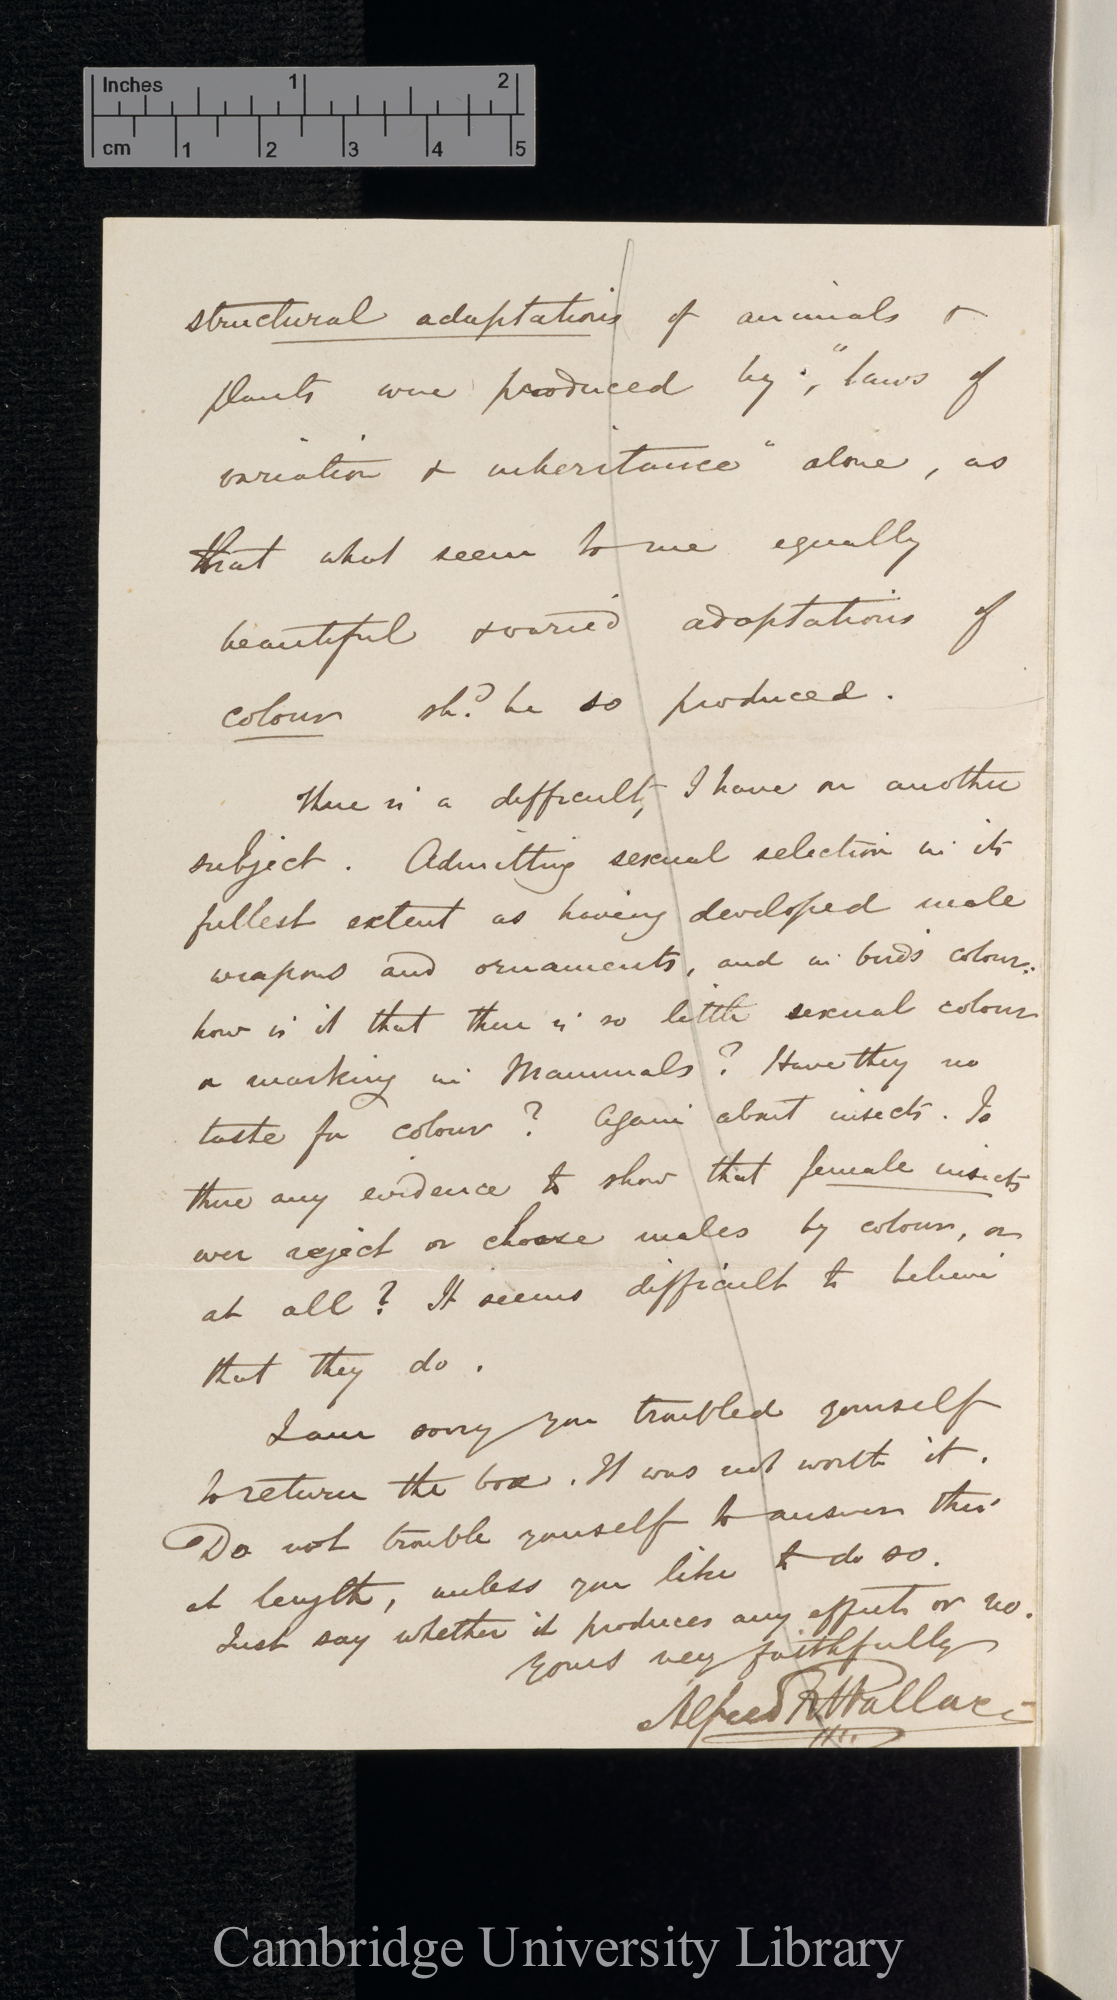 Inches 1 2
cm 1 2 3 4 5
structural adaptations of animals &
plants were produced by "laws of
variation & inheritance" alone, as
that what seem to me equally
beautiful & varied adaptations of
colour shd. be so produced.
There is a difficulty I have on another
subject. Admitting sexual selection in its
fullest extent as having developed male
weapons and ornaments, and in birds colour:
how is it that there is so little sexual colour
or marking in Mammals? Have they no
taste for colour? Again about insects. Is
there any evidence to show that female insects
ever reject or choose males by colour, or
at all? It seems difficult to believe
that they do.
I am sorry you troubled yourself
to return the box. It was not worth it.
Do not trouble yourself to answer this
at length, unless you like to do so.
Just say whether it produces any effects or no.
Yours very faithfully
Alfred R Wallace
Cambridge University Library